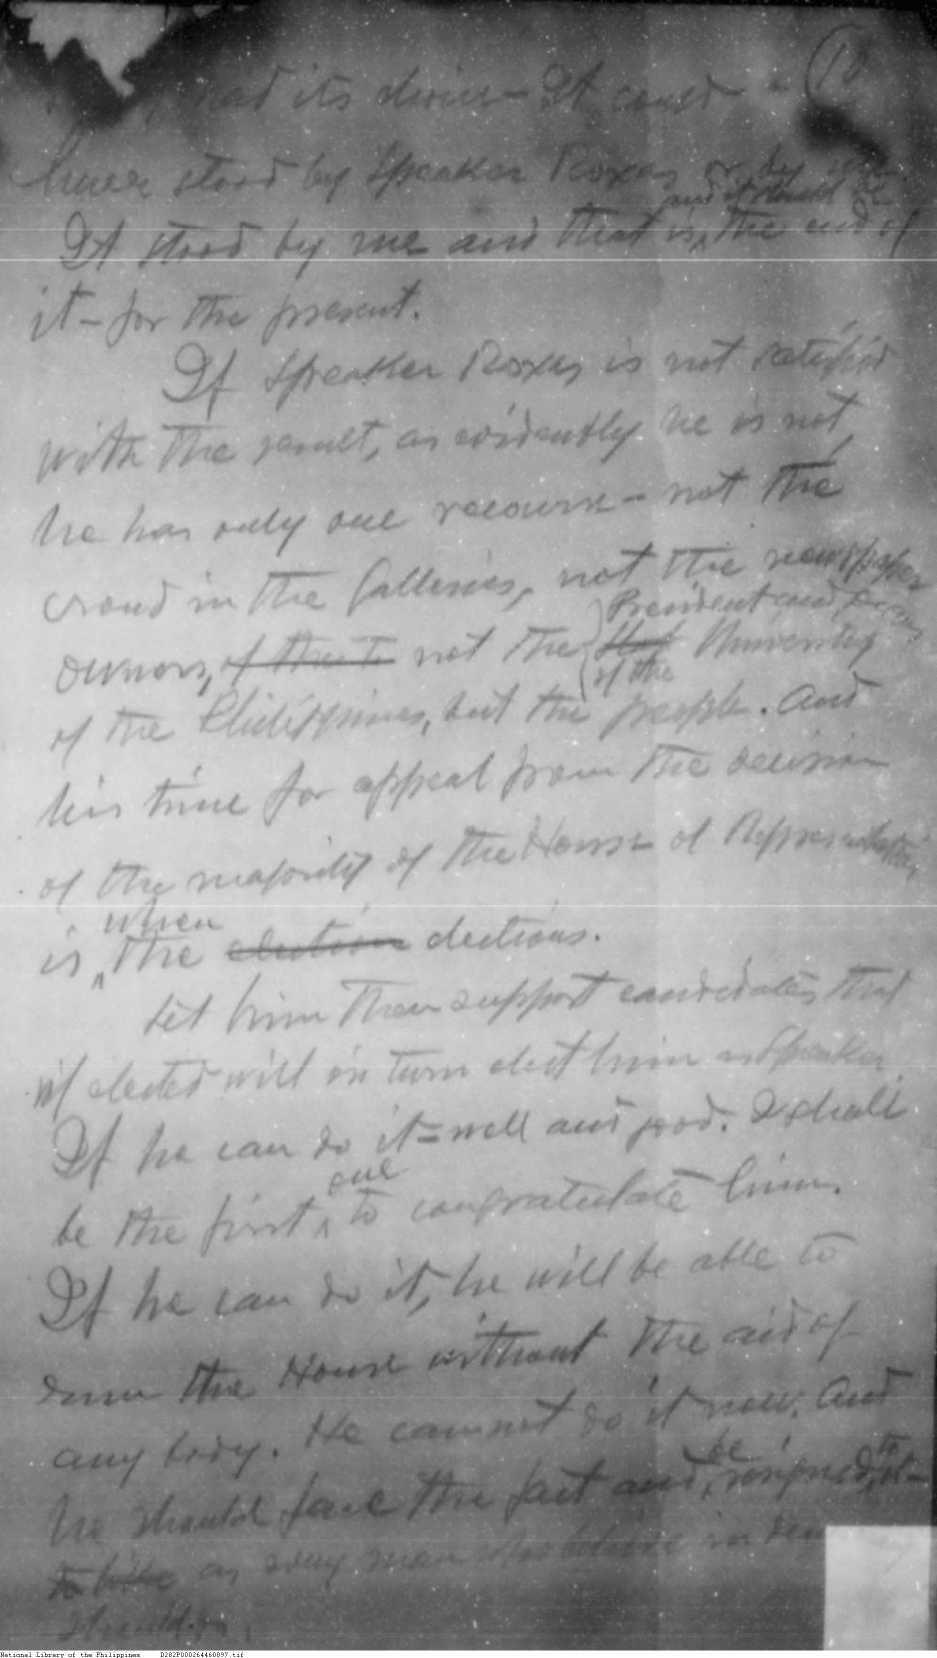 had its choice - It could
have stood by Speaker Roxas or by me.
and it should be
It stood by me and that is, the end of
it - for the present.
If Speaker Roxas is not satisfied
with the result, as evidently he is not,
he has only one recourse - not the
crowd in the Galleries, not the newspaper
President and
owners, of the not the University
of the
of the Philippines, but the people. And
his time for appeal from the decision
of the majority of the House of Representatives,
when
is the election elections.
Let him then support candidates that
if elected will in turn elect him as Speaker.
If he can do it - well and good. I shall
one
be the first to congratulate him.
If he can do it, he will be able to
run the House without the aid of
any body. He cannot do it now. And
be to
he should face the fact and resigned, it -
as every man who believe in
should do.
National Library of the Philippines D282P000264460097.tif